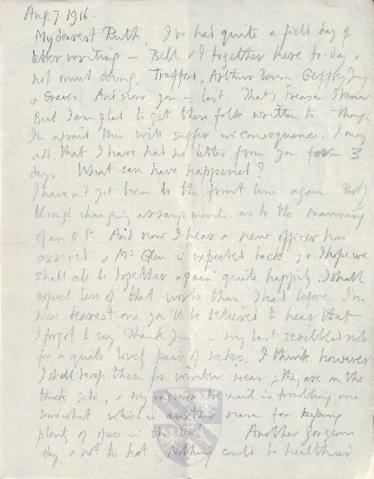 Aug. 7. 1916.
My dearest Ruth, I've had quite a field day of
letter writing – Bell & I together here to-day &
not much doing. Trafford, Arthur Benson, Geoffrey Young
& Graves. And now you – last. That's treason I know
But I am glad to get these folk written to – though
I'm afraid this will suffer in consequence. I may
add that I have had no letter from you for 3
days. What can have happened?
I haven't yet been to the front line again. Partly
through changing arrangements as to the manning
of an O.P. And now I hear a new officer has
arrived & Mr Glen is expected back; so I hope we
shall all be together again quite happily. I shall
expect less of that work than I had before. I'm
sure dearest one you'll be relieved to hear that.
I forgot to say thank you in my last scribbled note
for a quite lovely pair of socks. I think however
I shall keep them for winter wear; they are on the
thick side, & my toe nail is troubling me
somewhat which is another reason for keeping
plenty of space in the boot. Another gorgeous
day & not too hot. Nothing could be healthier